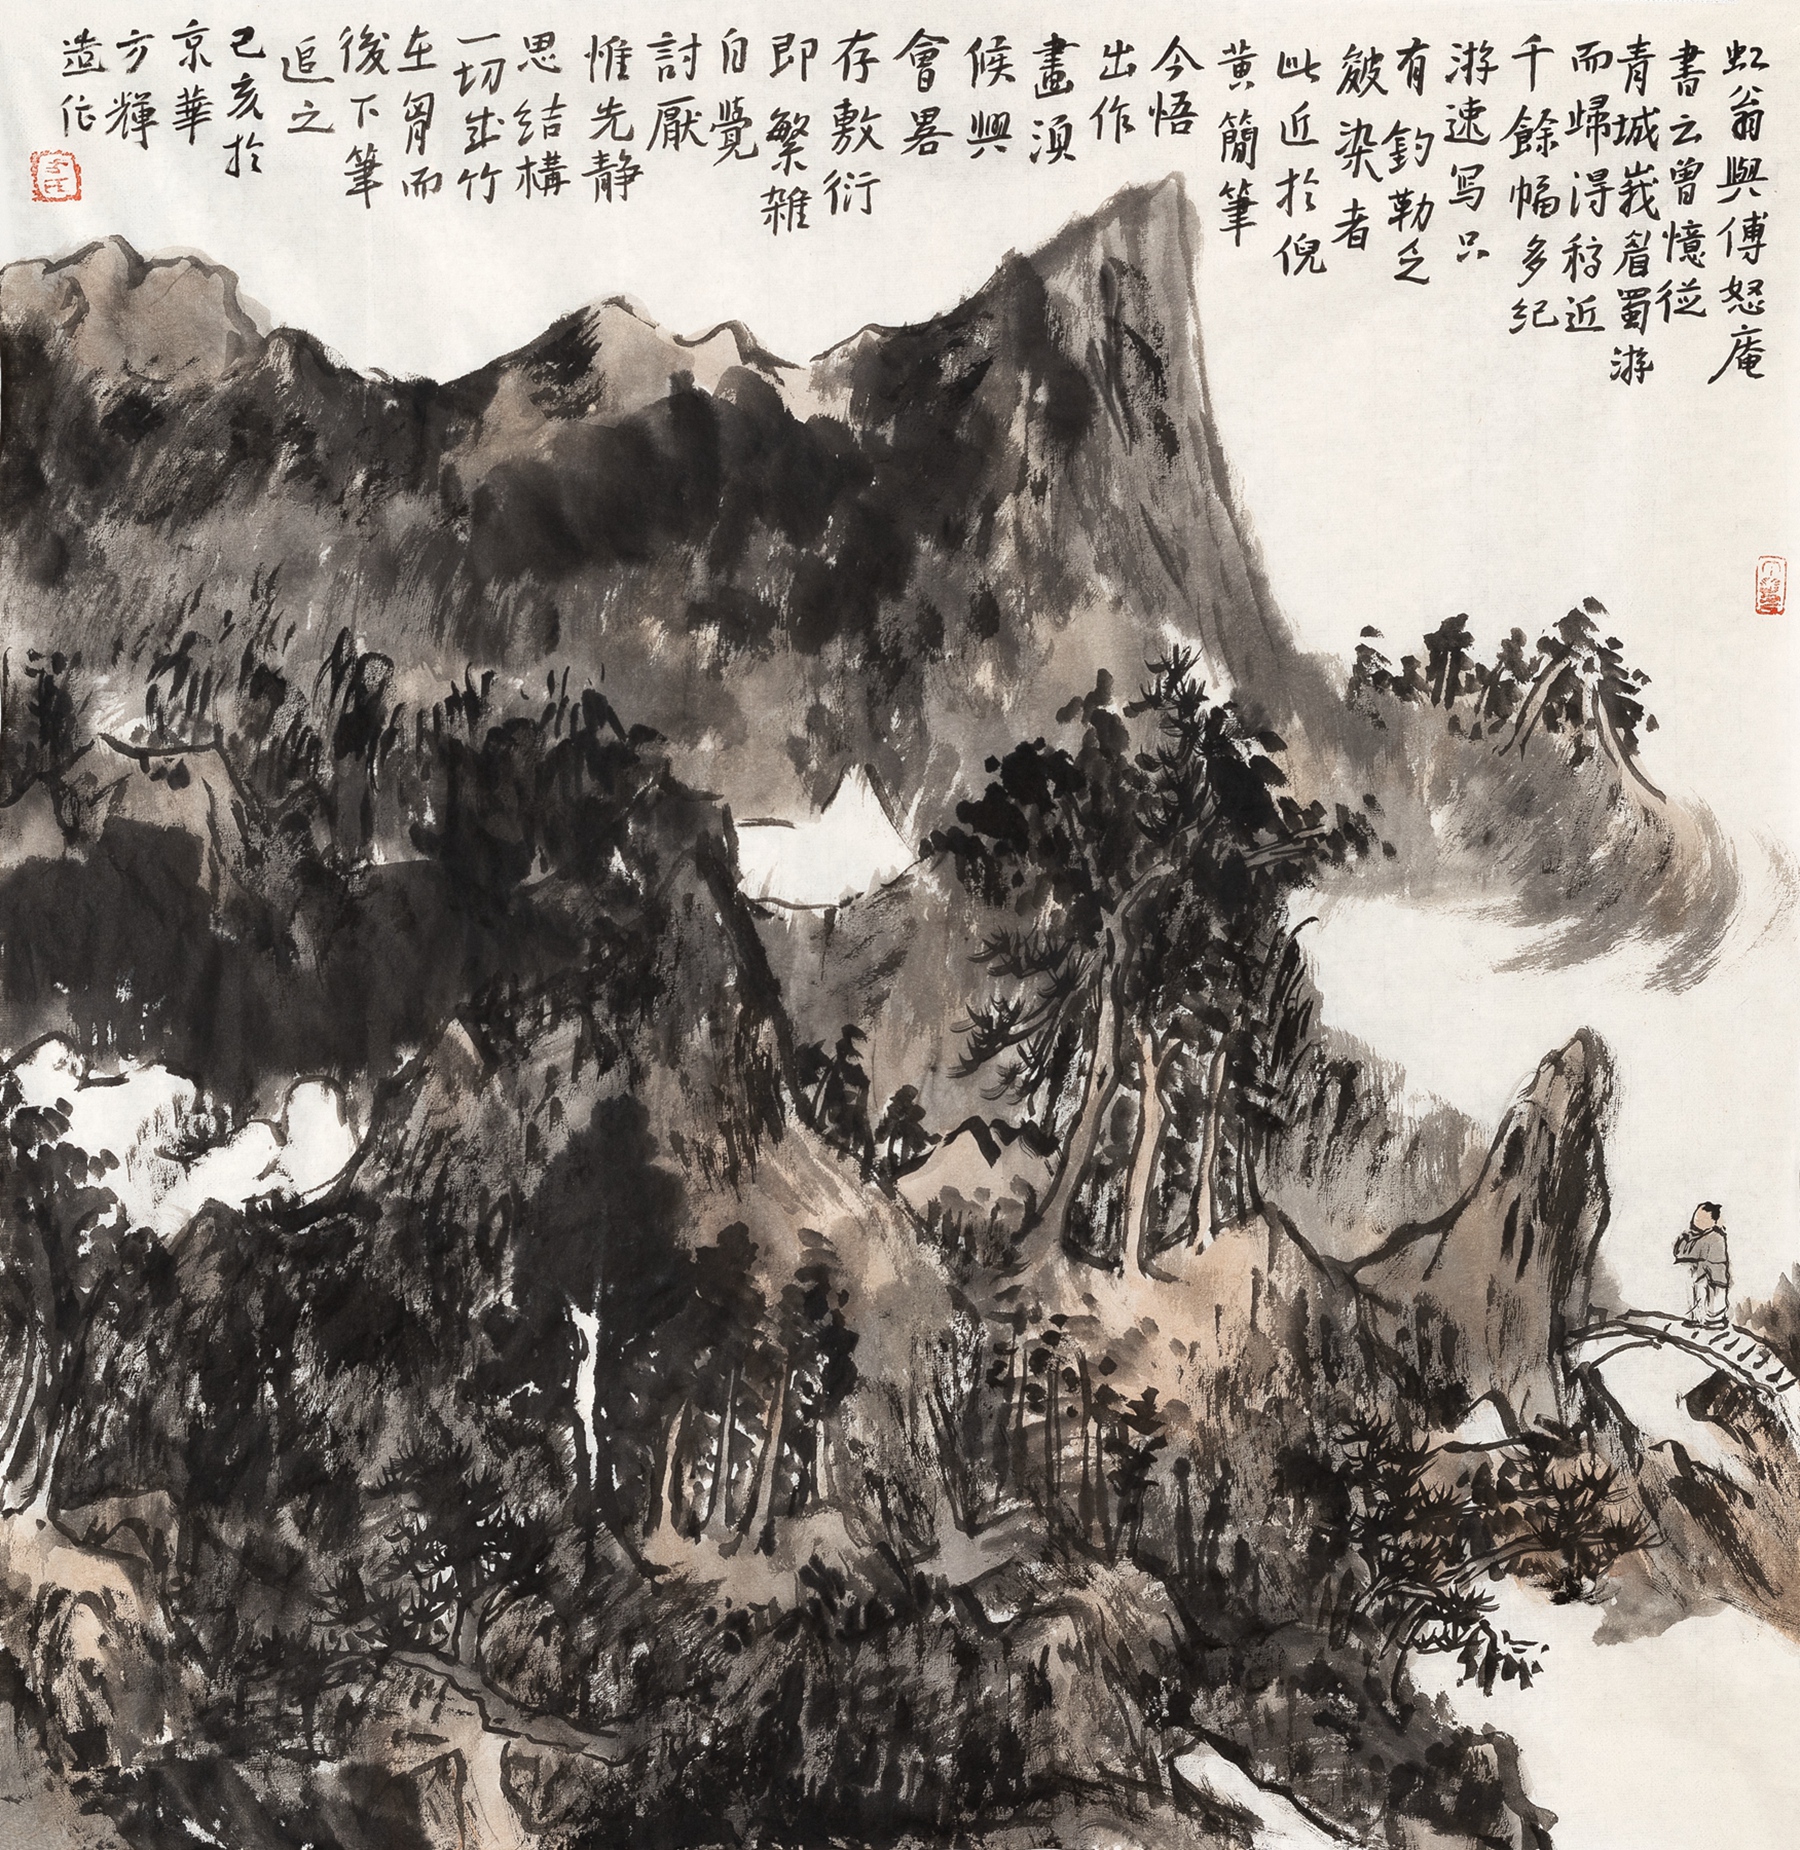 虹翁與傅怒庵
書云曾憶從
青城峩眉蜀游
而歸得稿近
千餘幅多紀
游速写只
有鈎勒乏
皴染者
此近於倪
黄簡筆
今悟
出作
畫湏
候興
會畧
存敷衍
即繁雜
自覺
討厭
惟先静
思結構
一切成竹
在胷而
後下筆
追之
己亥於
京華
方輝
造作